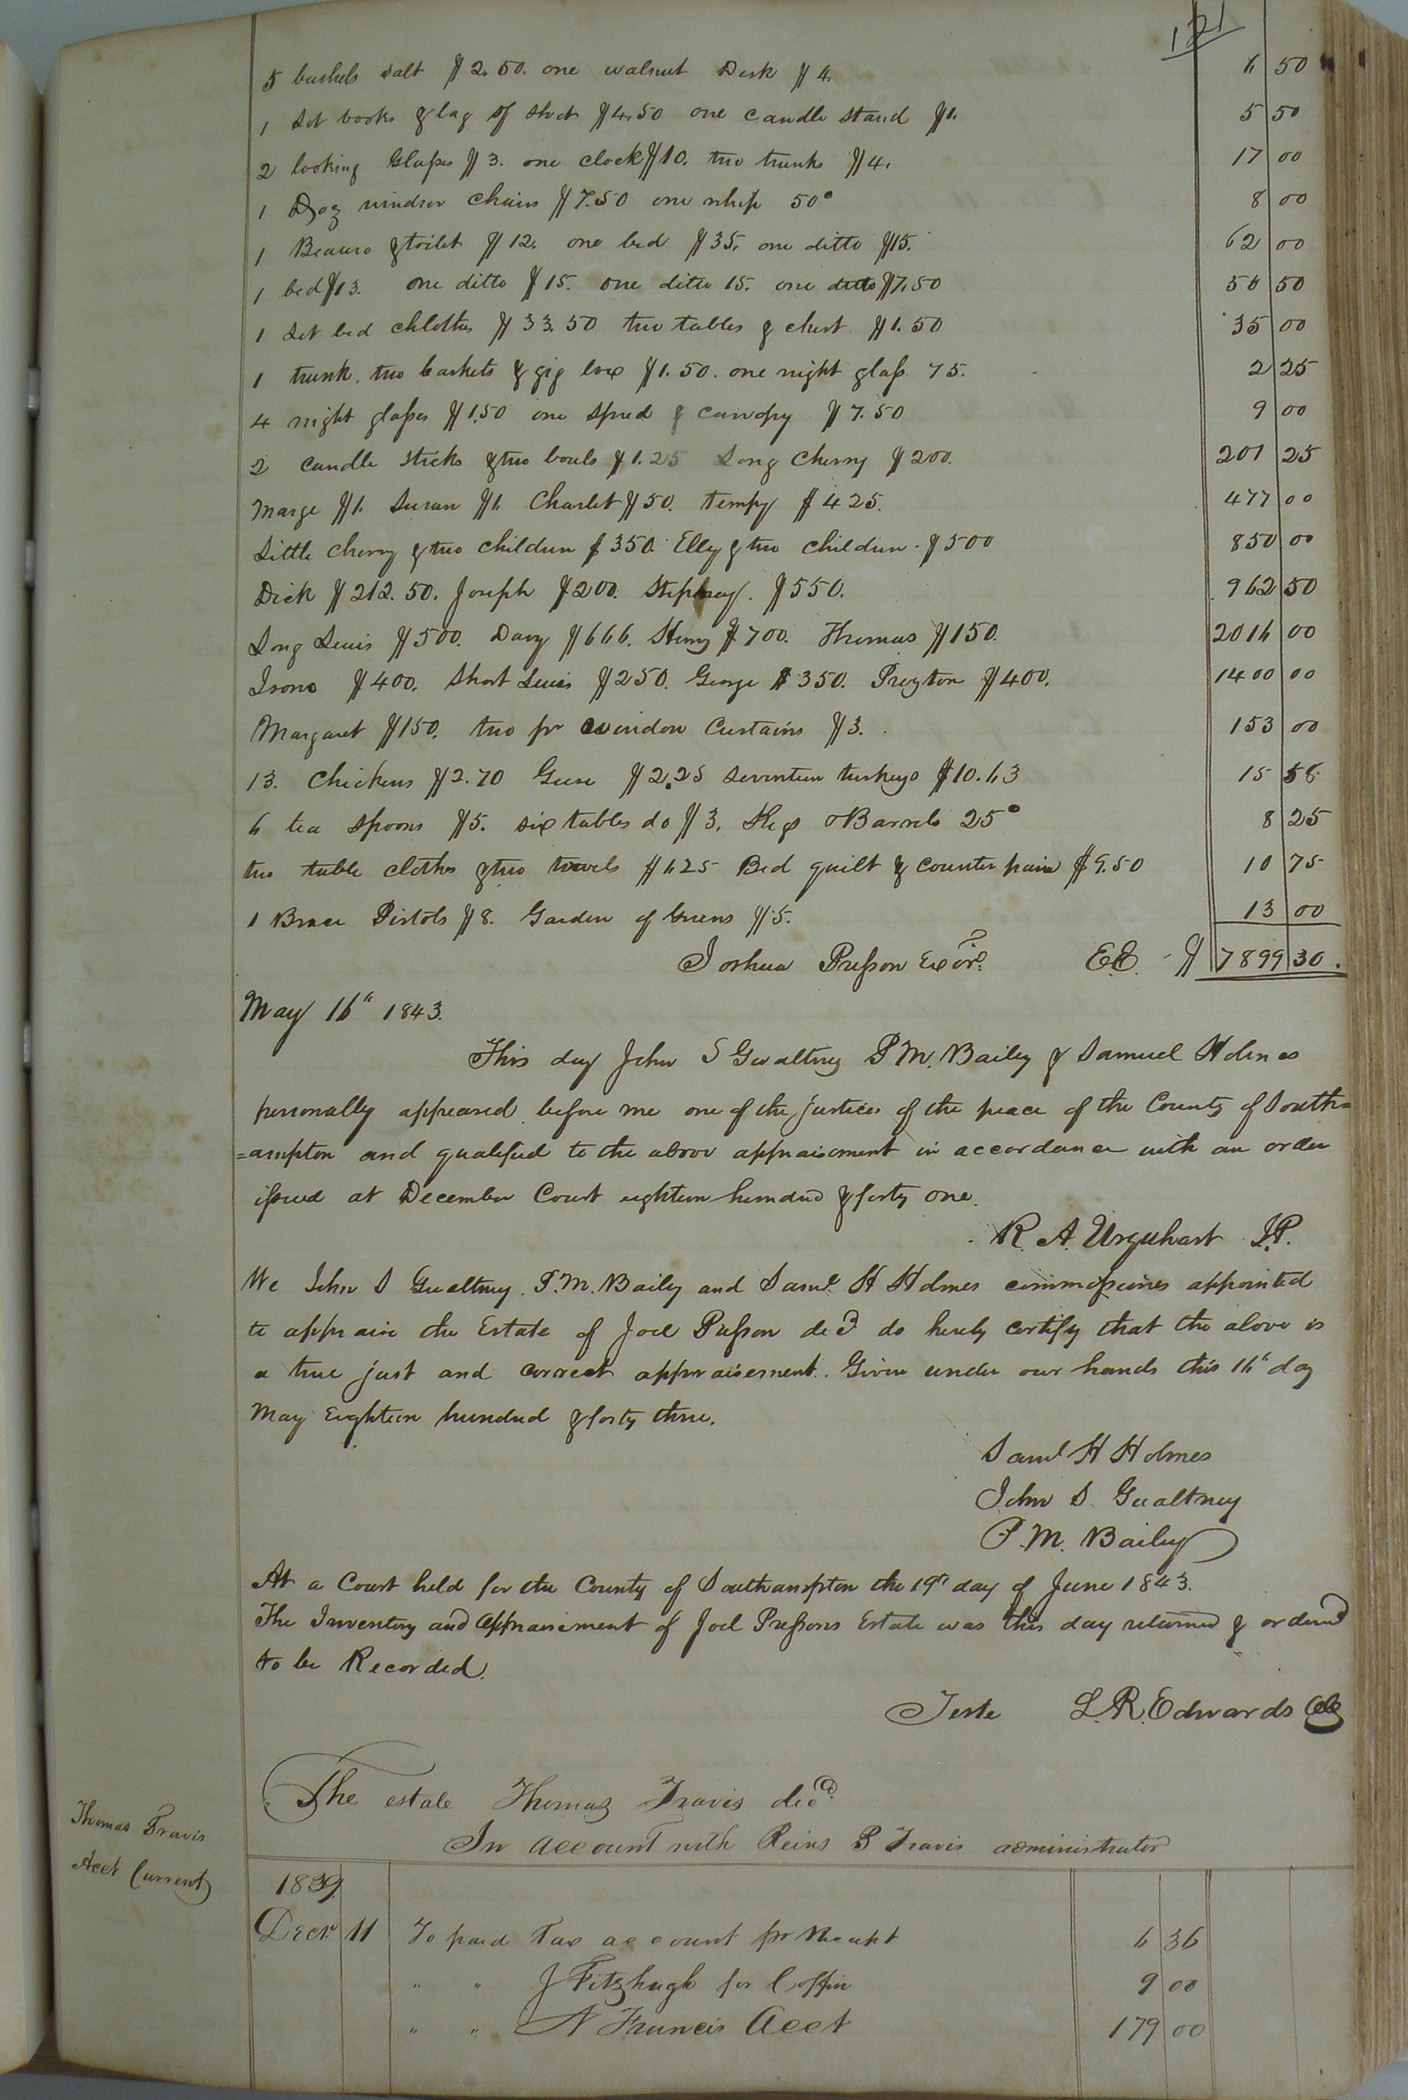 121
5 bushels salt $2.50. one walnut Desk $4. 6 50
1 Sot books & lag of shot $4.50 one candle stand $1. 5 50
2 looking Glasses $3. one clock $10. two trunks $4. 17 00
1 Doz windsor chairs $7.50 one whip 50c 8 00
1 Beauro & toilet $12. one bed $35. one ditto $15. 62 00
1 bed $13. one ditto $15. one ditto 15. one ditto $7.50 50 50
1 Sot bed chlothes $33.50 two tables & chest $1.50 35 00
1 trunk, two baskets & gig box $1.50. one night glass 75. 2 25
4 night glasses $1.50 one spred & canopy $7.50 9 00
2 candle sticks & two bouls $1.25 Long Cherry $200. 201 25
Marge $1. Susan $1. Charlet $50. Tempy $425. 477 00
Little Cherry & two children $350. Elly & two children. $500 850 00
Dick $212.50. Joseph $200. Stephney. $550. 962 50
Long Lewis $500. Davy $666. Henry $700. Thomas $150. 2016 00
Isom $400. Short Lewis $250. George $350. Preyton $400. 1400 00
Margaret $150. two pr window Curtains $3. 153 00
13. Chickens $2.70 Geese $2.25 seventeen turkeys $10.63 15 58
6 tea spoons $5. six tables do $3. Kegs & Barrels 25c 8 25
two table clothes & two towels $1.25 Bed quilt & counter pain $9.50 10 75
1 Brace Pistols $8. Garden of Greens $5. 13 00
Joshua Presson Exor. E.E. $ 7899 30.
May 16th 1843.
This day John S Gwaltney P. M. Bailey & Samuel Holmes
personally appeared before me one of the justices of the peace of the County of South=
=ampton and qualified to the above appraisement in accordance with an order
issued at December Court eighteen hundred & forty one.
R. A. Urquhart J.P.
We John S Gwaltney P. M. Baily and Saml H Holmes commissioners appointed
to appraise the Estate of Joel Presson decd do hereby certify that the above is
a true just and correct appraisement. Given under our hands this 16th day
May Eighteen hundred & forty three.
Saml H Holmes
John S. Gwaltney
P. M. Bailey
At a Court held for the County of Southampton the 19th day of June 1843.
The Inventory and Appraisement of Joel Pressons Estate was this day returned & ordered
to be Recorded.
Teste L. R. Edwards Clk
The estate Thomas Travis decd.
In account with Reins B Travis administrator
Thomas Travis
Acct Current
1839
Decr 11 To paid Tax account pr Receipt 6 36
" " J Fitzhugh for Coffin 9 00
" " N Francis Acct 179 00